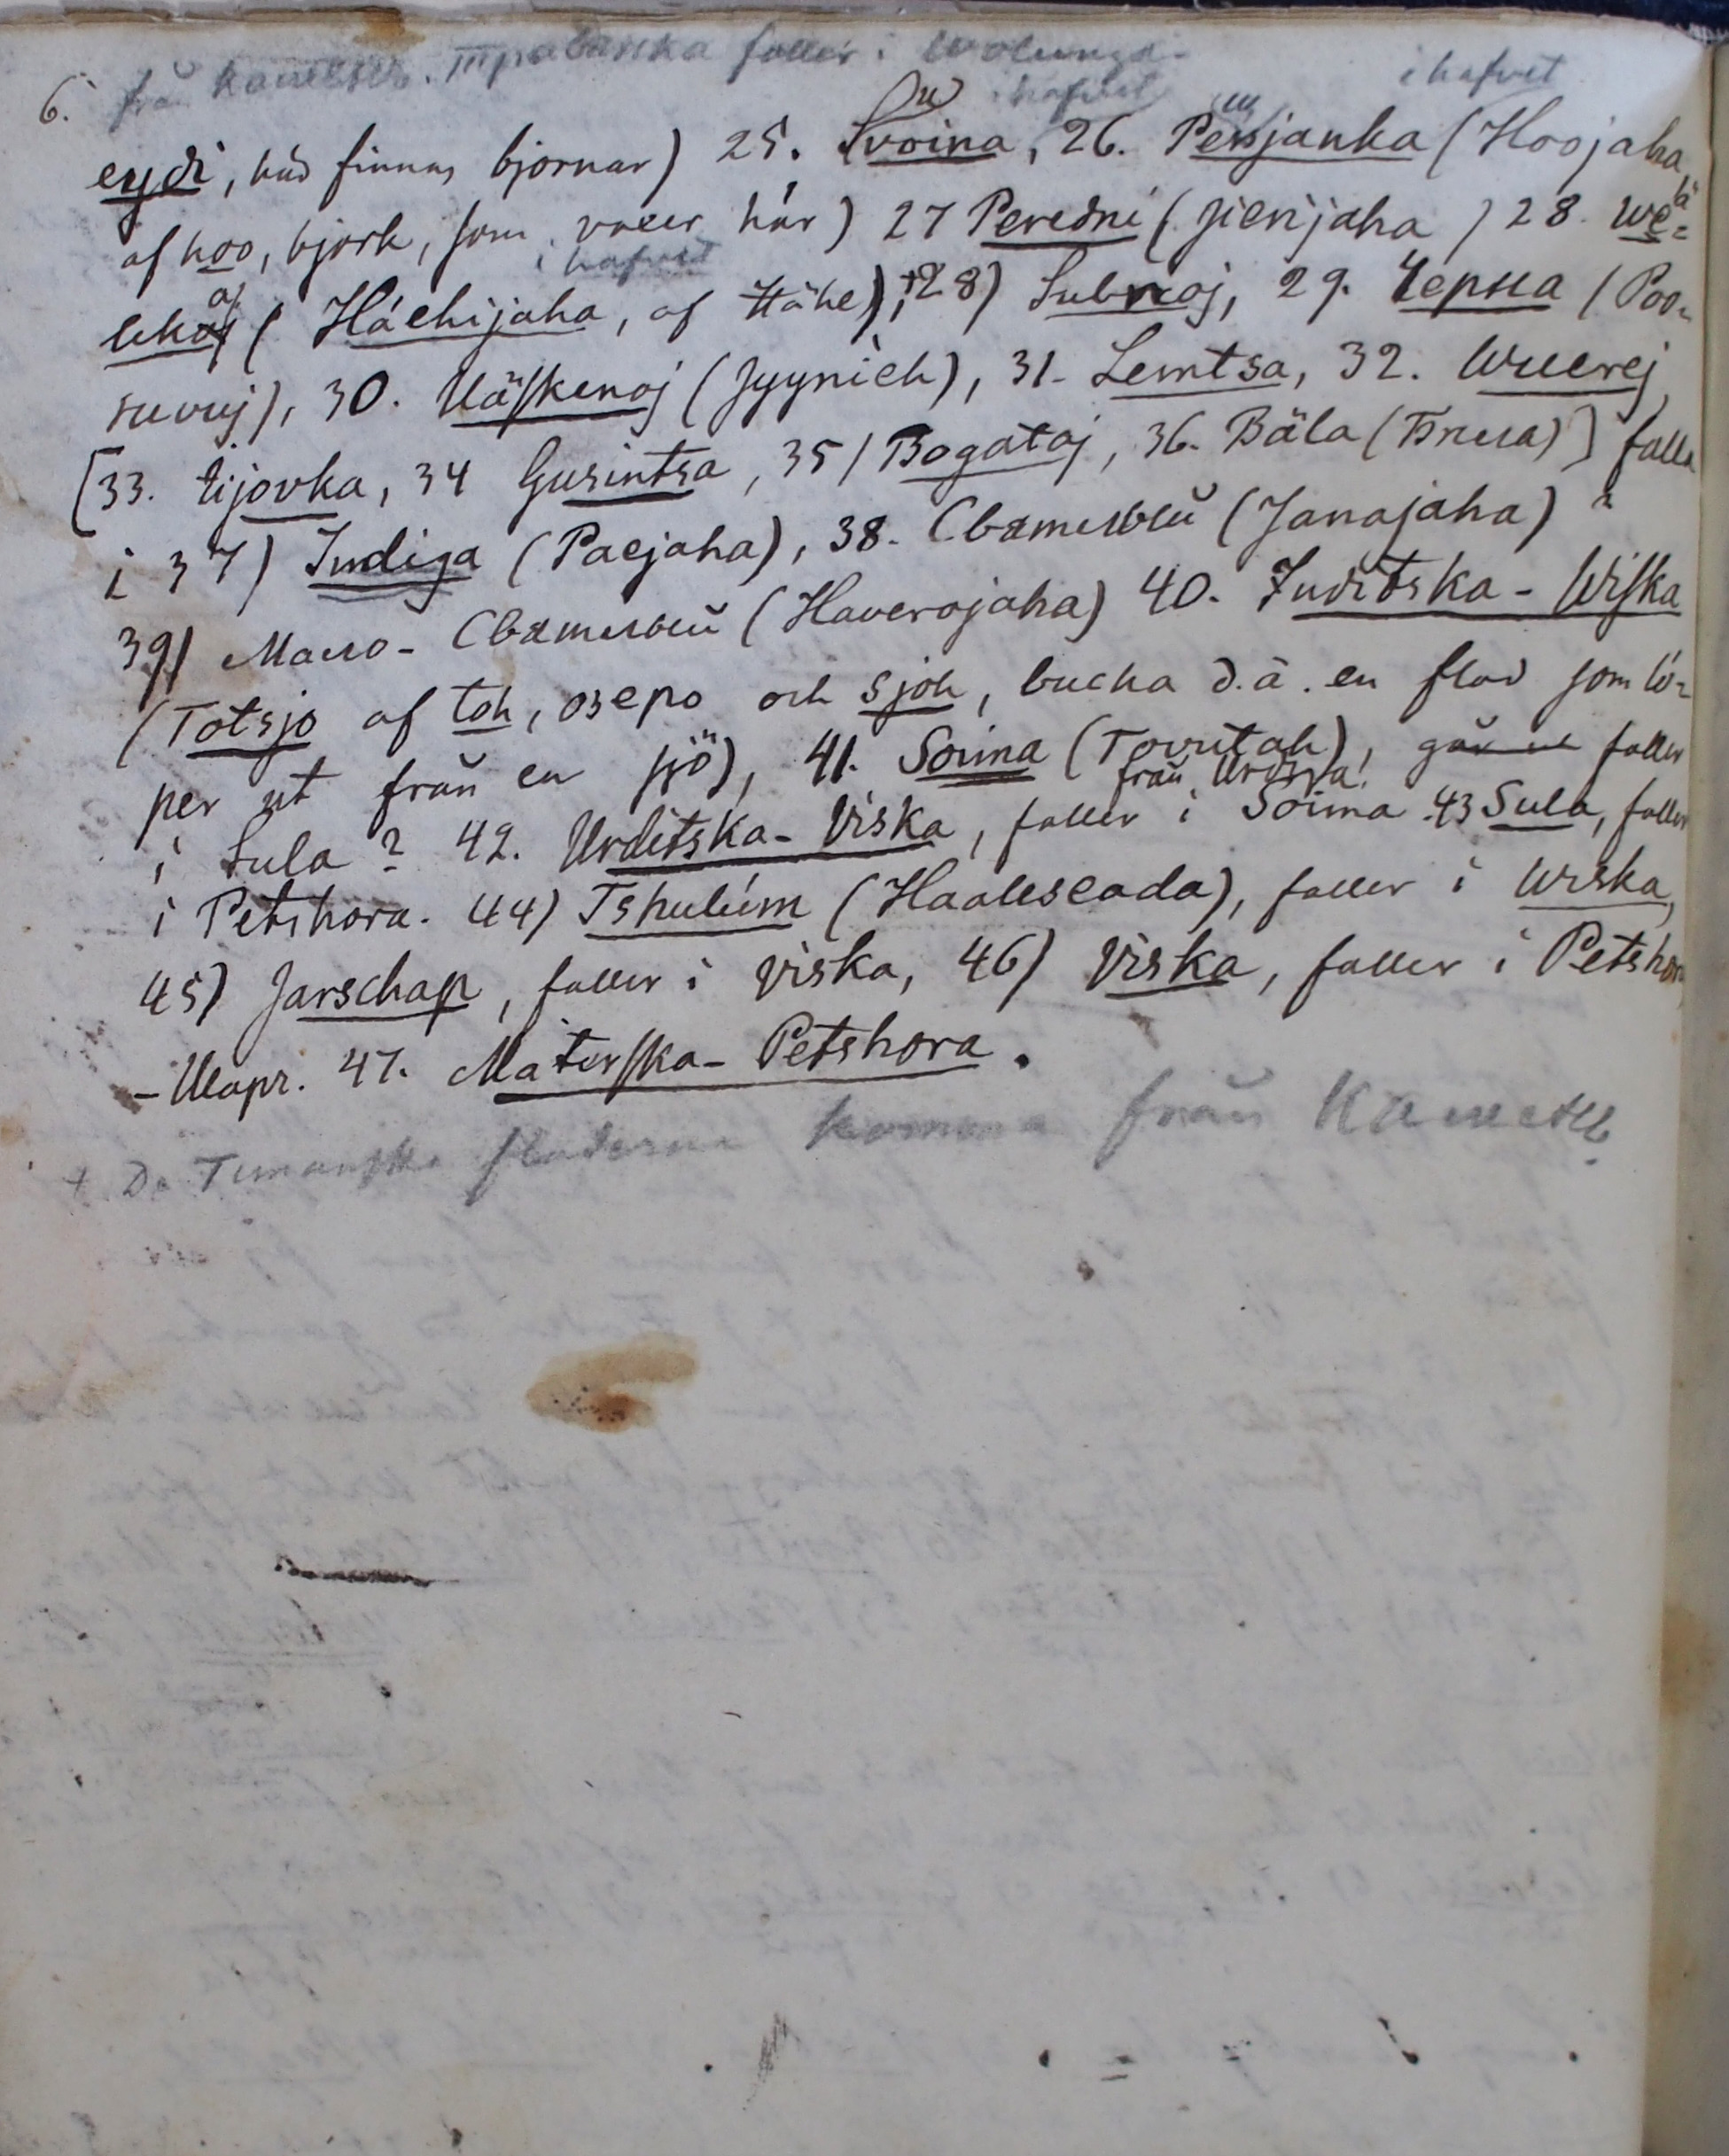 6. från Камень. faller i Wolunga
i hafvet i hafvet
eydi, här finnas björnar) 25. Svoina, 26. Pensjanka (Hoojaha
af hoo, björk, som växer här) 27 Peredni (Jierijaha) 28. We=
i hafvet
likaj (Háehijaha, af Hähe), +28) Subnoj, 29. Черна (Poo-
suvuj), 30. Väskenoj (Jyynieh), 31. Lemtsa, 32. Wuerej
[33. Ujovka, 34 Gusintsa, 35) Bogataj, 36. Bäla (Бѣла)] falla
i 37) Indiga (Paejaha), 38. Святый (Janajaha)
39) Мало-Святый (Haverojaha) 40. Juditska-Wiska
(Totsjo af toh, озеро och sjoh, bucha d.ä. en flod som lö-
per ut från en sjö), 41. Soima (Tovutah), går ut faller
från Urdjuga!
i Sula? 42. Urditska-Viska, faller i Soima 43 Sula, faller
i Petshora. 44) Tshulúm (Haaleseada), faller i Wiska,
45) Jarschap, faller i Viska, 46) Viska, faller i Petshora
-Шapr. 47. Materska-Petshora.
+ De Timanska floderna komma från Камень